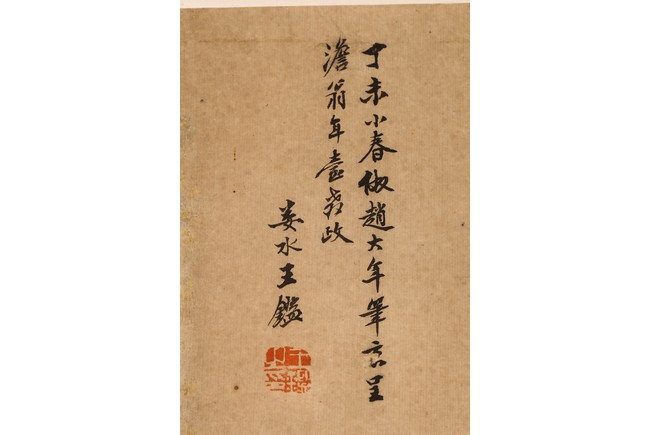 丁未小春倣趙大年筆
呈
澹翁年
政
婁水王鑑